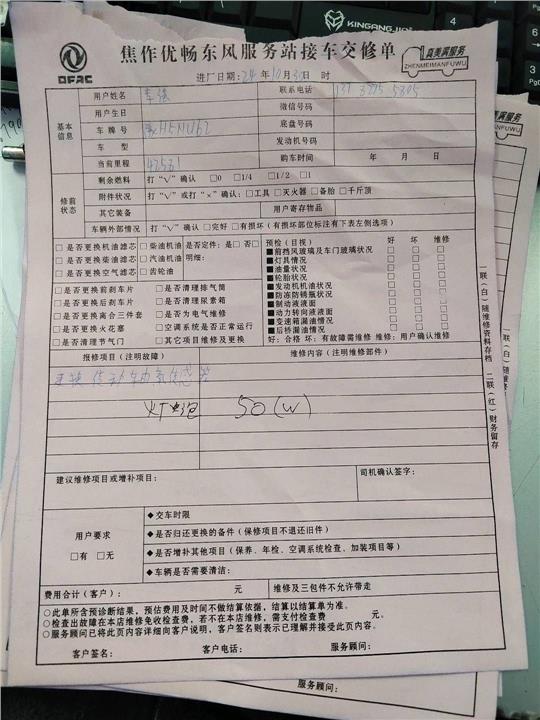 焦作优畅东风服务站接车交修单
DFAC
真美满服务
ZHENMEIMANFUWU
进厂日期：24年10月31日 时
基本信息
用户姓名 联系电话
用户生日 微信号码
车牌号 底盘号码
车型 发动机号码
当前里程 购车时间 年 月 日
修前状态
剩余燃料 打“√”确认 □0 □1/4 □1/2 □1
附件状况 打“√”或打“×”确认：□工具 □灭火器 □备胎 □千斤顶
其它装备 用户寄存物品
车辆外部情况 打“√”确认 □完好 □有损坏（有损坏部位标注有下表左侧选项）
□是否更换机油滤芯 □柴油机油 是否定件：是□否□
□是否更换柴油滤芯 □汽油机油 明细：
□是否更换空气滤芯 □齿轮油
□是否更换前刹车片 □是否清理排气筒
□是否更换后刹车片 □是否清理尿素箱
□是否更换离合三件套 □是否为电气维修
□是否更换火花塞 □空调系统是否正常运行
□是否清理节气门 □其它项目维修及更换
预检（目视） 好 坏 维修
■前挡风玻璃及车门玻璃状况
■灯具情况
■油量状况
■轮胎状况
■发动机机油情况
■防冻防锈瓶状况
■制动液液面
■动力转向液液面
■变速箱漏油情况
■后桥漏油情况
好：合格 坏：有故障需维修 维修：用户确认维修
报修项目（注明故障） 维修内容（注明维修部件）
灯泡 50(W)
建议维修项目或增补项目： 司机确认签字：
用户要求
□有 □无
◆交车时限
◆是否归还更换的备件（保修项目不退还旧件）
◆是否增补其他项目（保养、年检、空调系统检查、加装项目等）
◆车辆是否需要清洁：
费用合计（客户）： 元 维修及三包件不允许带走
○此单所含预诊断结果，预估费用及时间不做结算依据，结算以结算单为准。
○检查出故障在本店维修免收检查费，若不在本店维修，需支付检查费 元。
○服务顾问已将此页内容详细向客户说明，客户签名则表示已理解并接受此页内容。
客户签名： 客户电话： 服务顾问：
一联（白）随维修资料存档 二联（红）财务留存
服务顾问：